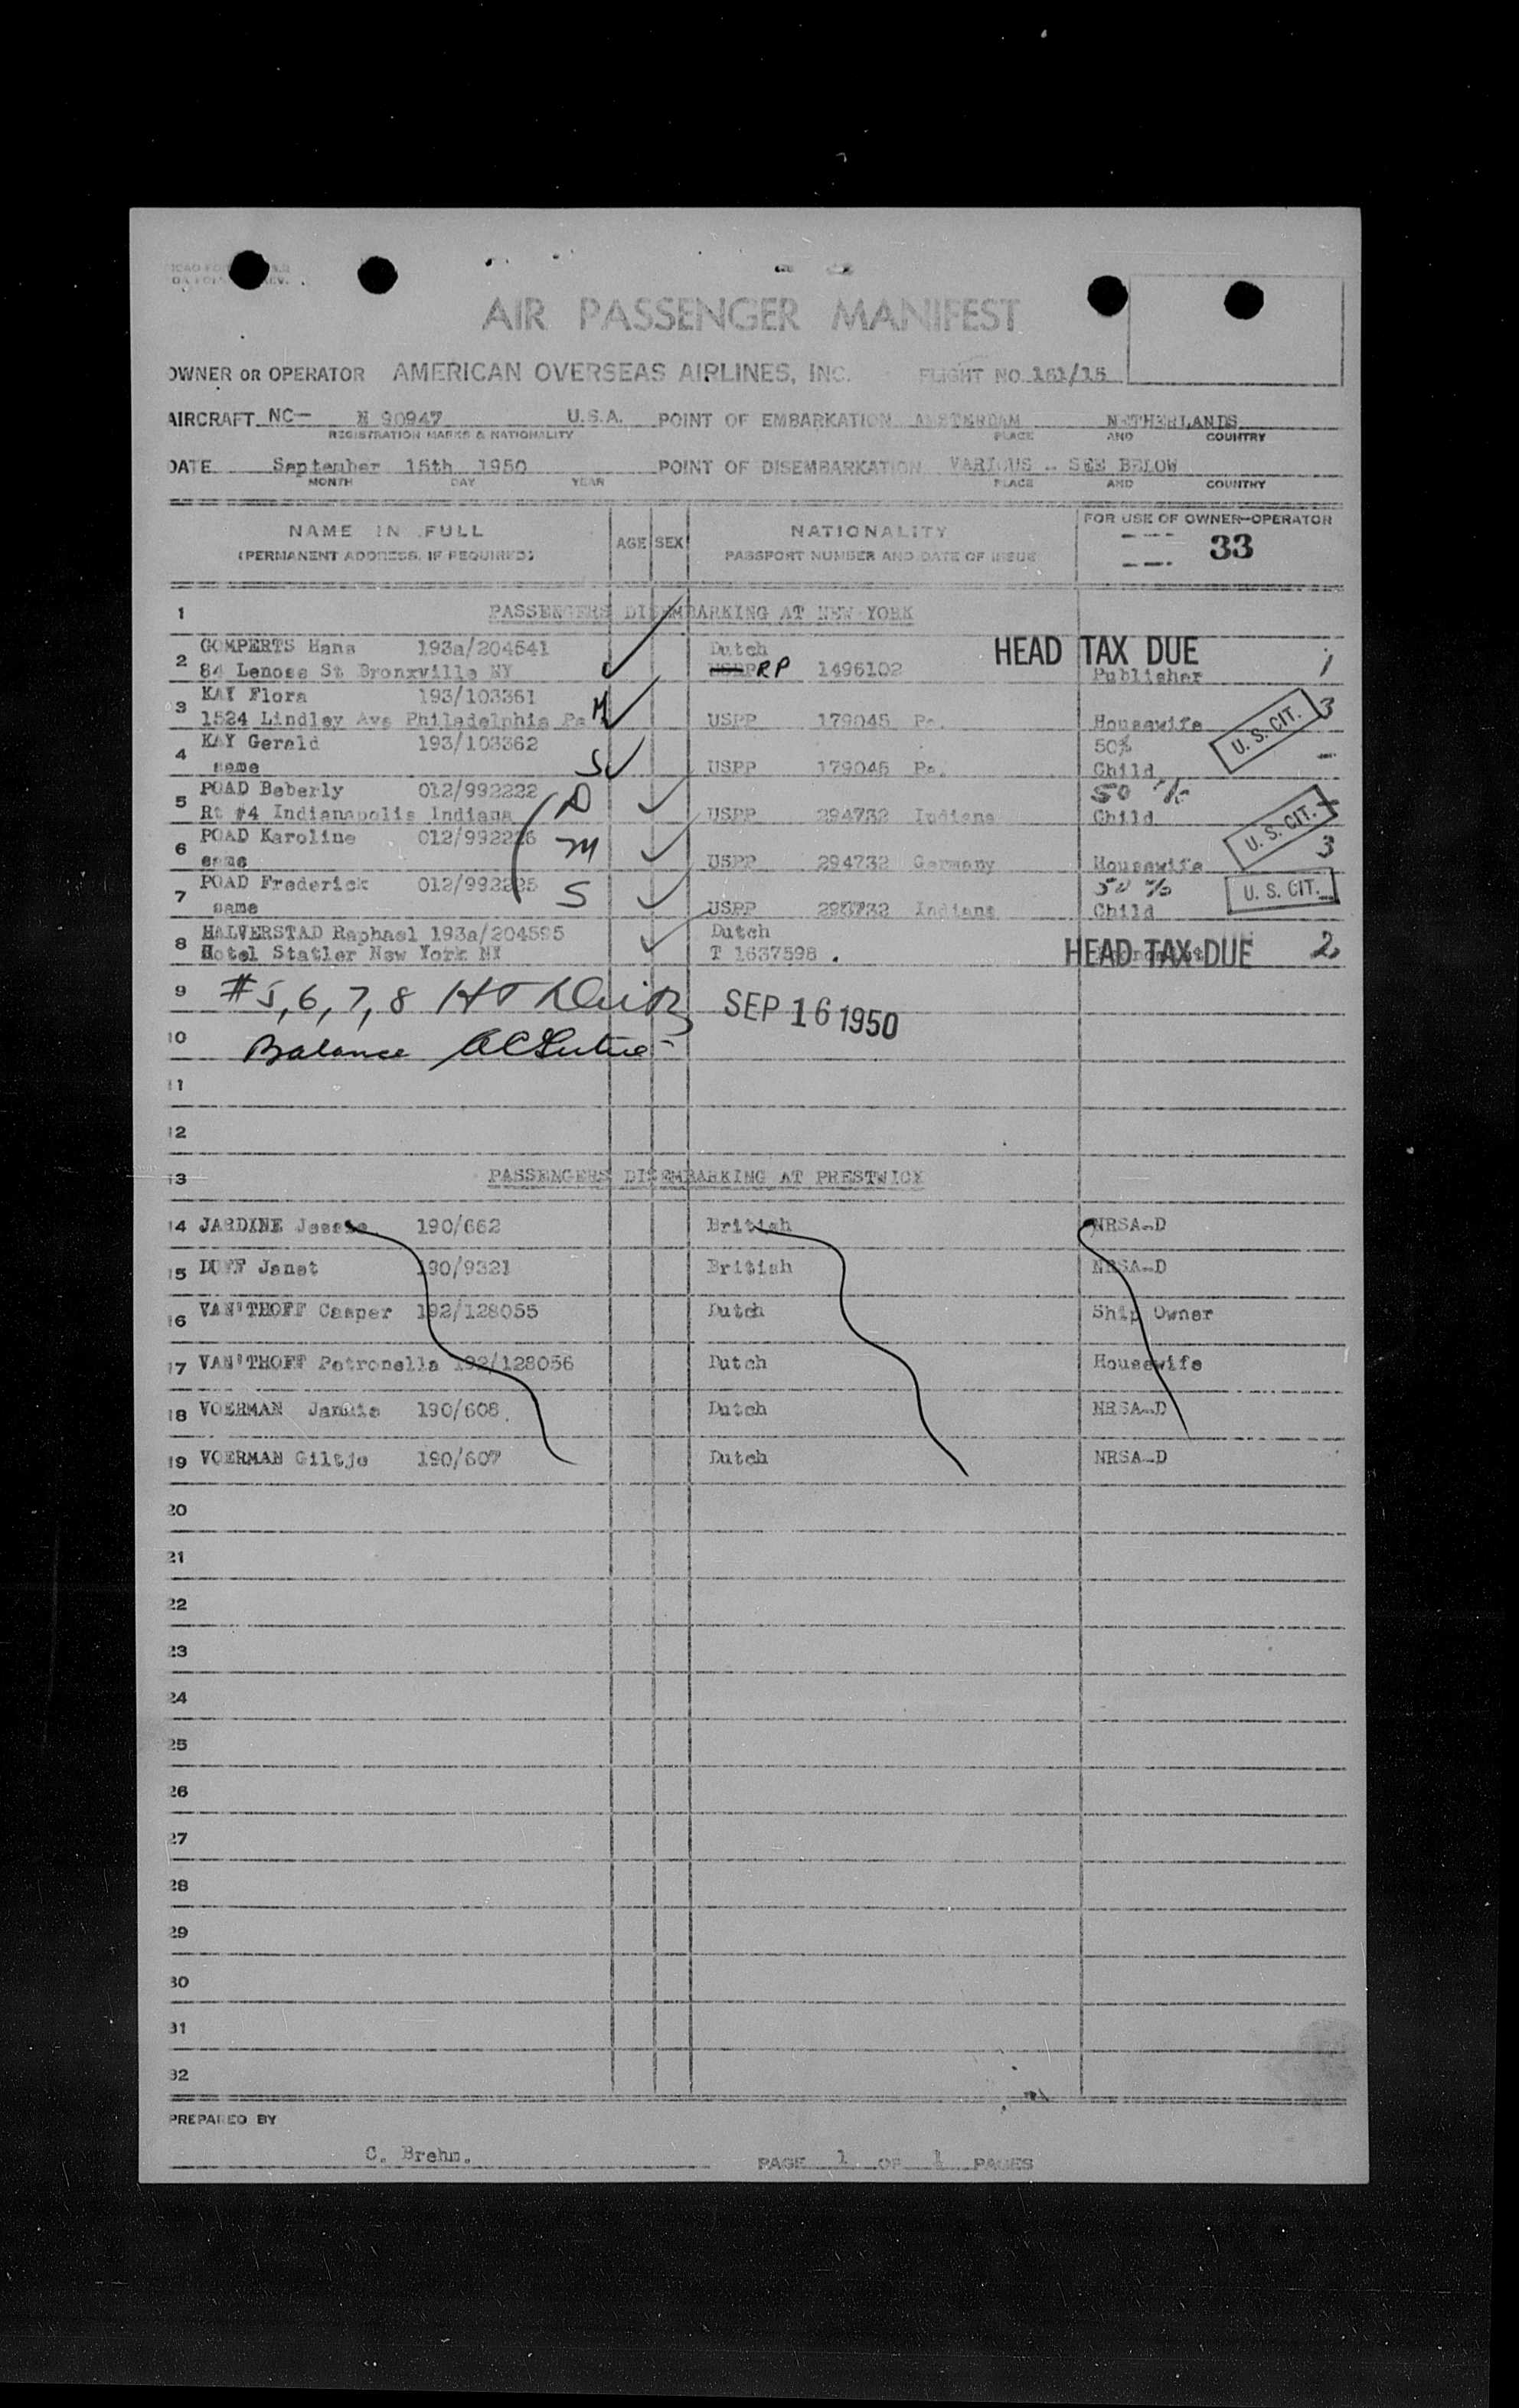 AIR PASSENGER MANIFEST
OWNER OR OPERATOR AMERICAN OVERSEAS AIRLINES, INC. FLIGHT NO 161/15
AIRCRAFT NC— N 90947 U.S.A. POINT OF EMBARKATION AMSTERDAM NETHERLANDS
REGISTRATION MARKS & NATIONALITY PLACE AND COUNTRY
DATE September 15th 1950 POINT OF DISEMBARKATION VARIOUS - SEE BELOW
MONTH DAY YEAR PLACE AND COUNTRY
NAME IN FULL AGE SEX NATIONALITY FOR USE OF OWNER-OPERATOR
(PERMANENT ADDRESS, IF REQUIRED) PASSPORT NUMBER AND DATE OF ISSUE 33
1 PASSENGERS DISEMBARKING AT NEW YORK
2 GOMPERTS Hans 193a/204541 Dutch HEAD TAX DUE 1
84 Lenoss St Bronxville NY RP 1496102 Publisher
3 KAY Flora 193/103361
1524 Lindley Ave Philadelphia Pa M USPP 179045 Pa. Housewife U. S. CIT. 3
4 KAY Gerald 193/103362 50%
same S USPP 179045 Pa. Child
5 POAD Beberly 012/992222 D 50 %
Rt #4 Indianapolis Indiana USPP 294732 Indiana Child U. S. CIT.
6 POAD Karoline 012/992226 M 3
same USPP 294732 Germany Housewife
7 POAD Frederick 012/992225 S 50 % U. S. CIT.
same USPP 294732 Indiana Child
8 HALVERSTAD Raphael 193a/204595 Dutch
Hotel Statler New York NY T 1637598 . HEAD TAX DUE 2
9 #5, 6, 7, 8 SEP 16 1950
10 Balance
11
12
13 PASSENGERS DISEMBARKING AT PRESTWICK
14 JARDINE Jessie 190/662 British NRSA-D
15 DUFF Janet 190/9321 British NRSA-D
16 VAN'THOFF Casper 192/128055 Dutch Ship Owner
17 VAN'THOFF Petronella 192/128056 Dutch Housewife
18 VOERMAN 190/608 Dutch NRSA-D
19 VOERMAN Giltje 190/607 Dutch NRSA-D
20
21
22
23
24
25
26
27
28
29
30
31
32
PREPARED BY
C. Brehm. PAGE 1 OF 1 PAGES